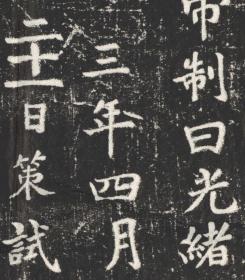 帝制曰光緒
三年四月
二十一日策試